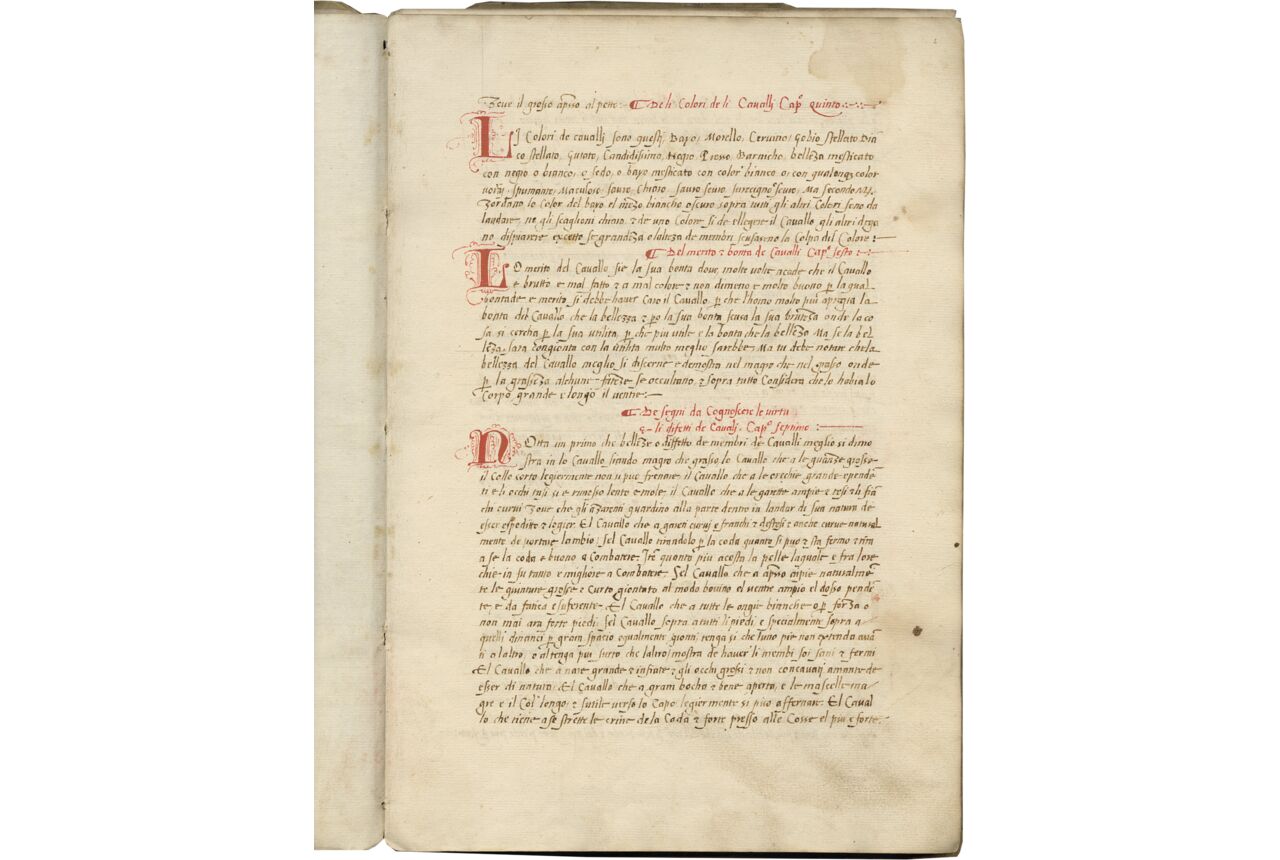 il grosso apresso al petto. De li Colori de li Cavalli Cap.º Quinto
LI Colori de cavalli sono questi Bayo, Morello, Cervino, Gobio stellato Bia
co stellato, Gutato, Candidissimo, Negro, bellezza mesticato
con negro o bianco, o sedo, o bayo mesticato con color bianco o con qualonq; color
Spumante, Maculoso, Sauro Chiaro, Sauro scuro, scuro, Ma secondo
Zordano lo Color del bayo el mezo biancho oscuro sopra tuti gli altri Colori sono da
laudare, chiaro, de uno Colore si de ellegere il Cavallo, gli altri
no dispiacere excetto se grandeza o alteza de membri scusareno la Colpa del Colore:
Del merito ⁊ bonta de Cavalli Cap.º sesto:
LO merito del Cavallo sie la sua bonta dove molte volte acade che il Cavallo
e brutto e mal fatto ⁊ a mal colore ⁊ non dimeno e molto buono p la qual
bontade e merito si debbe haver Caro il Cavallo, p che l'homo molto piu apregia la
bonta del Cavallo che la bellezza ⁊ po la sua bonta scusa la sua brutezza onde la co
sa si cercha p la sua utilita p che piu utile e la bonta che la bellezza Ma se la bel
lezza sara con la utilita multo meglio sarebbe, Ma tu debe notare che la
bellezza del Cavallo meglio si discerne e demostra nel magro che nel grasso onde
p la grassezza alchune fateze se occultano, ⁊ sopra tutto Considera che lo habia lo
Corpo grande e longo il ventre:
De segni da Cognoscere le virtu
⁊ li difetti de Cavalj. Cap.º septimo:
NOtta in primo che bellezze o diffetto de membri de Cavalli meglio si dimo
stra in lo Cavallo siando magro che grasso, lo Cavallo che a le guanze grosse
il Collo corto legiermente non si puo frenare il Cavallo che a le orechie grande e pende
ti e li occhi si e lento e mole, il Cavallo che a le garette ampie ⁊ tesi ⁊ li fia
chi curvi Zoue che gli guardino alla parte dentro in landar di sua natura de
esser espedito ⁊ legier. El Cavallo che a garetti curvi e franchi ⁊ destesi ⁊ anche curve natural
mente de portare lambio; Sel Cavallo tirandolo p la coda quanto si puo ⁊ sta fermo ⁊
a se la coda e buono a Combatere. Ite quanto piu acosta la pelle laquale e fra lore
chie in su tanto e migliore a Combatere. Sel Cavallo che a ampie naturalme
te le grosse ⁊ Curto giontato al modo bovino el ventre ampio el dosso pende
te, e da fatica e suferente El Cavallo che a tutte le ongie bianche o p forza o
non mai ara forte piedi Sel Cavallo sopra a tutti li piedi, e specialmente sopra a
quelli dinanci p gram spacio equalmente tenga si che luno pie non extenda avā
ti a laltro, o al tenga piu curto che laltro mostra de haver li membri soi sani ⁊ fermi
El Cavallo che a nare grande ⁊ infiate ⁊ gli occhi grossi ⁊ non concavati amante de
esser di natura. El Cavallo che a gram bocha ⁊ bene aperta, e le mascelle ma
gre e il Col longo, ⁊ sutile verso lo Capo legiermente si puo affernare. El Caval
lo che tiene a se strette le crine de la Coda ⁊ forte presso alle Cosse el piu e forte.